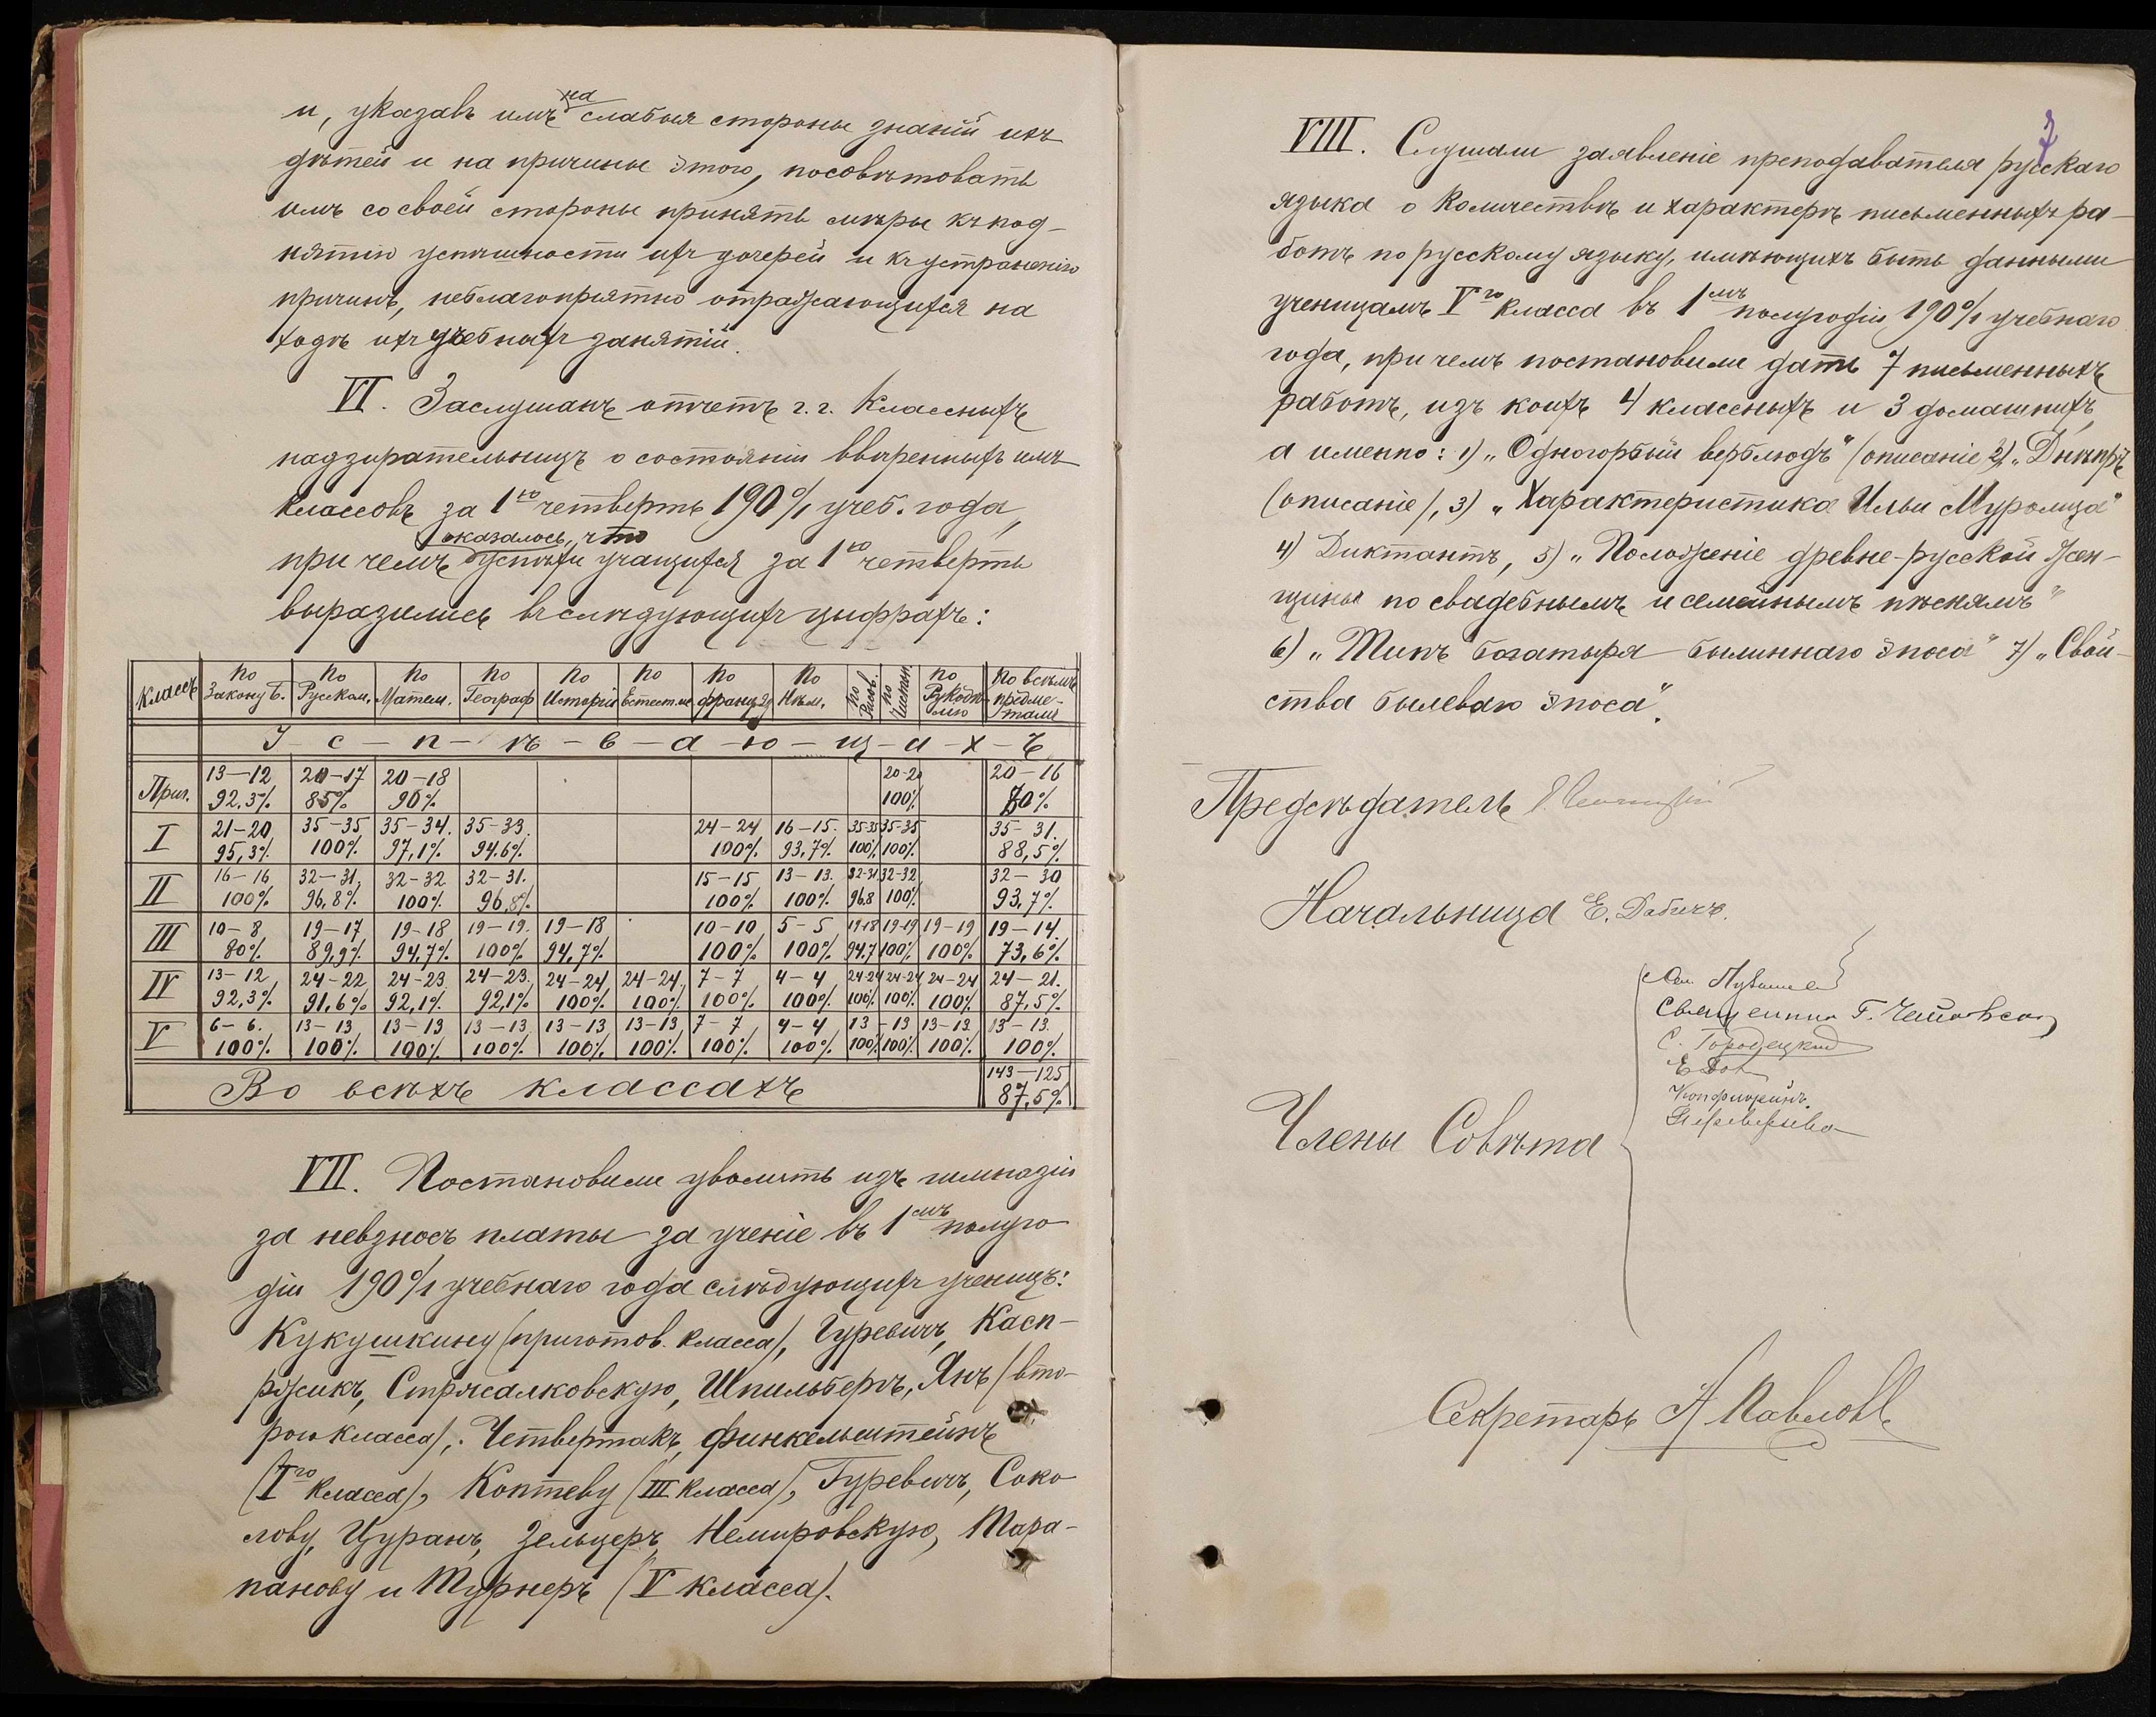 и, указавъ имъ на слабыя стороны знаній ихъ
дѣтей и на причины этого, посовѣтовать
имъ со своей стороны принять мѣры къ под-
нятію успѣшности ихъ дочерей и къ устраненію
причинъ, неблагопріятно отражающихся на
ходѣ ихъ учебныхъ занятій.
VI. Заслушанъ отчетъ г.г. классныхъ
надзирательницъ о состояніи ввѣренныхъ имъ
классовъ за 1ую четверть 190 0/1 учеб. года,
при чемъ оказалось, что успѣхи учащихся за 1ую четверть
выразились въ слѣдующихъ цифрахъ:
Классъ По Закону Б. По Русском. По Матем. По Географ По Исторіи По Естест.ст. По франц.яз По Нѣм. По Рисов. По Чистоп. По Рукодѣлію По всѣмъ предметамъ
У - с - п - ѣ - в - а - ю - щ - и - х - ъ
Приг. 13-12 20-17 20-18 20-20 20-16
92,3% 85% 90% 100% 80%
I 21-20 35-35 35-34. 35-33. 24-24 16-15. 35-35 35-35 35-31.
95,3% 100% 97,1% 94.6% 100% 93,7% 100% 100% 88,5%
II 16-16 32-31. 32-32 32-31. 15-15 13-13. 32-31 32-32 32-30
100% 96,8% 100% 96,8% 100% 100% 96,8 100% 93,7%
III 10-8 19-17 19-18 19-19. 19-18 10-10 5-5 19-18 19-19 19-19 19-14.
80% 89,9% 94,7% 100% 94,7% 100% 100% 94,7 100% 100% 73,6%
IV 13-12 24-22 24-23 24-23. 24-24 24-24. 7-7 4-4 24-24 24-24 24-24 24-21.
92,3% 91,6% 92,1% 92,1% 100% 100% 100% 100% 100% 100% 100% 87,5%
V 6-6. 13-13 13-13 13-13 13-13 13-13 7-7 4-4 13-13 13-13 13-13.
100% 100% 100% 100% 100% 100% 100% 100% 100% 100% 100% 100%
Во всѣхъ классахъ 143-125
87,5%
VII. Постановили уволить изъ гимназіи
за невзносъ платы за ученіе въ 1омъ полуго
діи 190 0/1 учебнаго года слѣдующихъ ученицъ:
Кукушкину (приготов. класса), Гуревичъ, Касп-
ржикъ, Стржалковскую, Шпильбергъ, Янъ (вто-
рого класса), Четвертакъ, Финкельштейнъ
(Iго класса), Коптеву (III класса), Гуревичъ, Соко
лову, Цуранъ, Зельцеръ, Немировскую, Тара-
панову и Турнеръ (V класса).
7
VIII. Слушали заявленіе преподавателя русскаго
языка о количествѣ и характерѣ письменныхъ ра-
ботъ по русскому языку, имѣющихъ быть данными
ученицамъ Vго класса въ 1омъ полугодіи 190 0/1 учебнаго
года, при чемъ постановили дать 7 письменныхъ
работъ, изъ коихъ 4 классныхъ и 3 домашнихъ,
а именно: 1) „Одногорбый верблюдъ" (описаніе 2) „Днѣпръ
(описаніе), 3) „Характеристика Ильи Муромца"
4) Диктантъ, 5) „Положеніе древне-русской жен-
щины по свадебнымъ и семейнымъ пѣснямъ"
6) „Типъ богатыря былиннаго эпоса" 7) „Свой-
ства былевого эпоса".
Предсѣдатель
Начальница Е. Бабичъ.
Священникъ Г.
С. Городецкій
Члены Совѣта
Секретарь А Павловъ